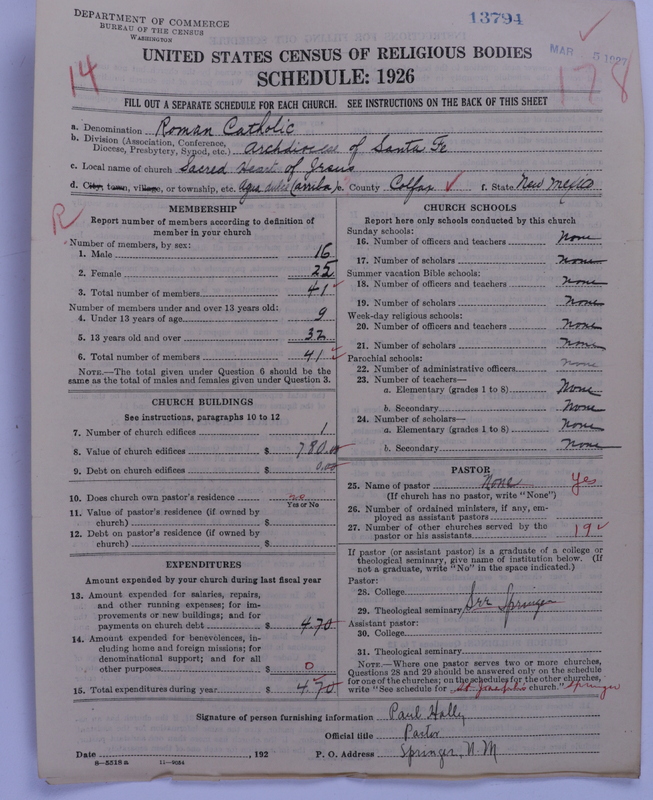 DEPARTMENT OF COMMERCE
BUREAU OF THE CENSUS
WASHINGTON
13794
MAR 5 1927
UNITED STATES CENSUS OF RELIGIOUS BODIES
SCHEDULE: 1926
14
178
FILL OUT A SEPARATE SCHEDULE FOR EACH CHURCH. SEE INSTRUCTIONS ON THE BACK OF THIS SHEET
a. Denomination Roman Catholic
b. Division (Association, Conference,
Diocese, Presbytery, Synod, etc.) Archdiocese of Santa Fe
c. Local name of church Sacred Heart of Jesus
d. City, town, village, or township, etc. Agua dulce (arriba) e. County Colfax f. State New Mexico
R
MEMBERSHIP
Report number of members according to definition of
member in your church
Number of members, by sex:
1. Male 16
2. Female 25
3. Total number of members 41
Number of members under and over 13 years old:
4. Under 13 years of age 9
5. 13 years old and over 32
6. Total number of members 41
NOTE.—The total given under Question 6 should be
the same as the total of males and females given under Question 3.
CHURCH BUILDINGS
See instructions, paragraphs 10 to 12
7. Number of church edifices 1
8. Value of church edifices $ 780.00
9. Debt on church edifices $ 0.00
10. Does church own pastor's residence no
Yes or No
11. Value of pastor's residence (if owned by
church) $
12. Debt on pastor's residence (if owned by
church) $
EXPENDITURES
Amount expended by your church during last fiscal year
13. Amount expended for salaries, repairs,
and other running expenses; for im-
provements or new buildings; and for
payments on church debt $ 4.70
14. Amount expended for benevolences, in-
cluding home and foreign missions; for
denominational support; and for all
other purposes $ 0
15. Total expenditures during year $ 4.70
CHURCH SCHOOLS
Report here only schools conducted by this church
Sunday schools:
16. Number of officers and teachers None
17. Number of scholars None
Summer vacation Bible schools:
18. Number of officers and teachers None
19. Number of scholars None
Week-day religious schools:
20. Number of officers and teachers None
21. Number of scholars None
Parochial schools:
22. Number of administrative officers None
23. Number of teachers—
a. Elementary (grades 1 to 8) None
b. Secondary None
24. Number of scholars—
a. Elementary (grades 1 to 8) None
b. Secondary None
PASTOR
25. Name of pastor None Yes
(If church has no pastor, write "None")
26. Number of ordained ministers, if any, em-
ployed as assistant pastors
27. Number of other churches served by the
pastor or his assistants 19
If pastor (or assistant pastor) is a graduate of a college or
theological seminary, give name of institution below. (If
not a graduate, write "No" in the space indicated.)
Pastor:
28. College
29. Theological seminary See Springer
Assistant pastor:
30. College
31. Theological seminary
NOTE.—Where one pastor serves two or more churches,
Questions 28 and 29 should be answered only on the schedule
for one of the churches; on the schedules for the other churches,
write "See schedule for St. Joseph's church." Springer
Signature of person furnishing information Paul Hally
Official title Pastor
Date , 192 P. O. Address Springer, N.M
8—5318a 11—9084